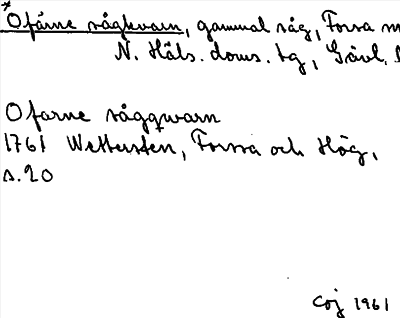 *Ofärne sågkvarn, gammal såg, Forsa
N. Häls. doms. tg, Gävl.
Ofarne sågqwarn
1761 Wettersten, Forssa och Hög,
s. 20
Coj 1961